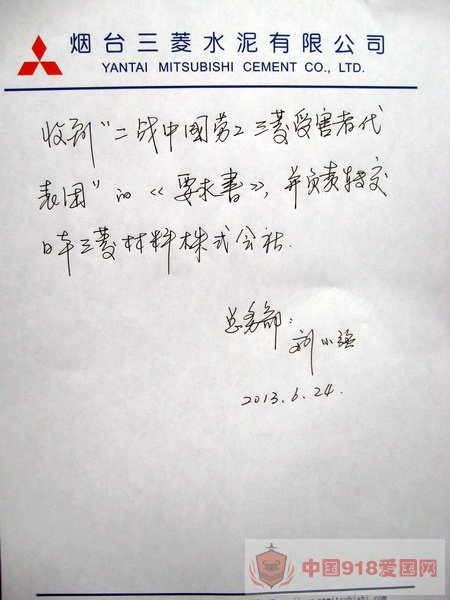 烟台三菱水泥有限公司
YANTAI MITSUBISHI CEMENT CO., LTD.
收到"二战中国劳工三菱受害者代
表团"的《要求书》,并负责转交
日本三菱材料株式会社.
总务部:
刘小强
2013.6.24.
中国918爱国网